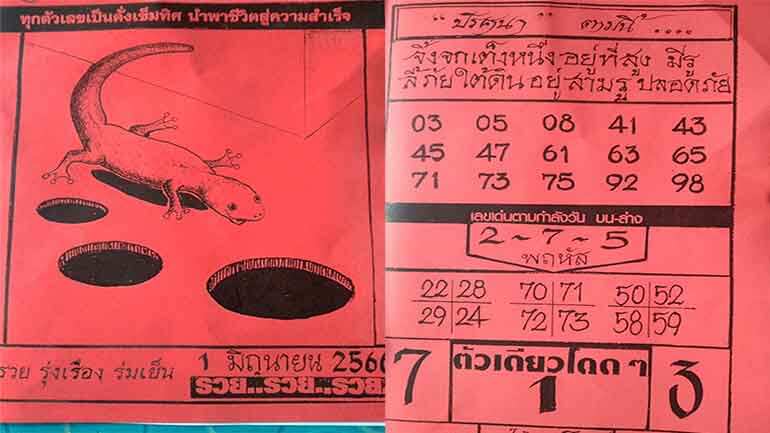 ทุกตัวเลขเป็นดั่งเข็มทิศ นำพาชีวิตสู่ความสำเร็จ
รวย รุ่งเรือง ร่มเย็น
1 มิถุนายน 2566
รวย..รวย..รวย
"ปริศนา" ตามนี้....
จิ้งจกเต๋งหนึ่งอยู่ที่สูง มีรู
ลี้ภัยใต้ดินอยู่สามรูปลอดภัย
03 05 08 41 43
45 47 61 63 65
71 73 75 92 98
เลขเด่นตามกำลังวัน บน-ล่าง
2-7-5
พฤหัส
22 28 70 71 50 52
29 24 72 73 58 59
ตัวเดียวโดดๆ
7 1 3